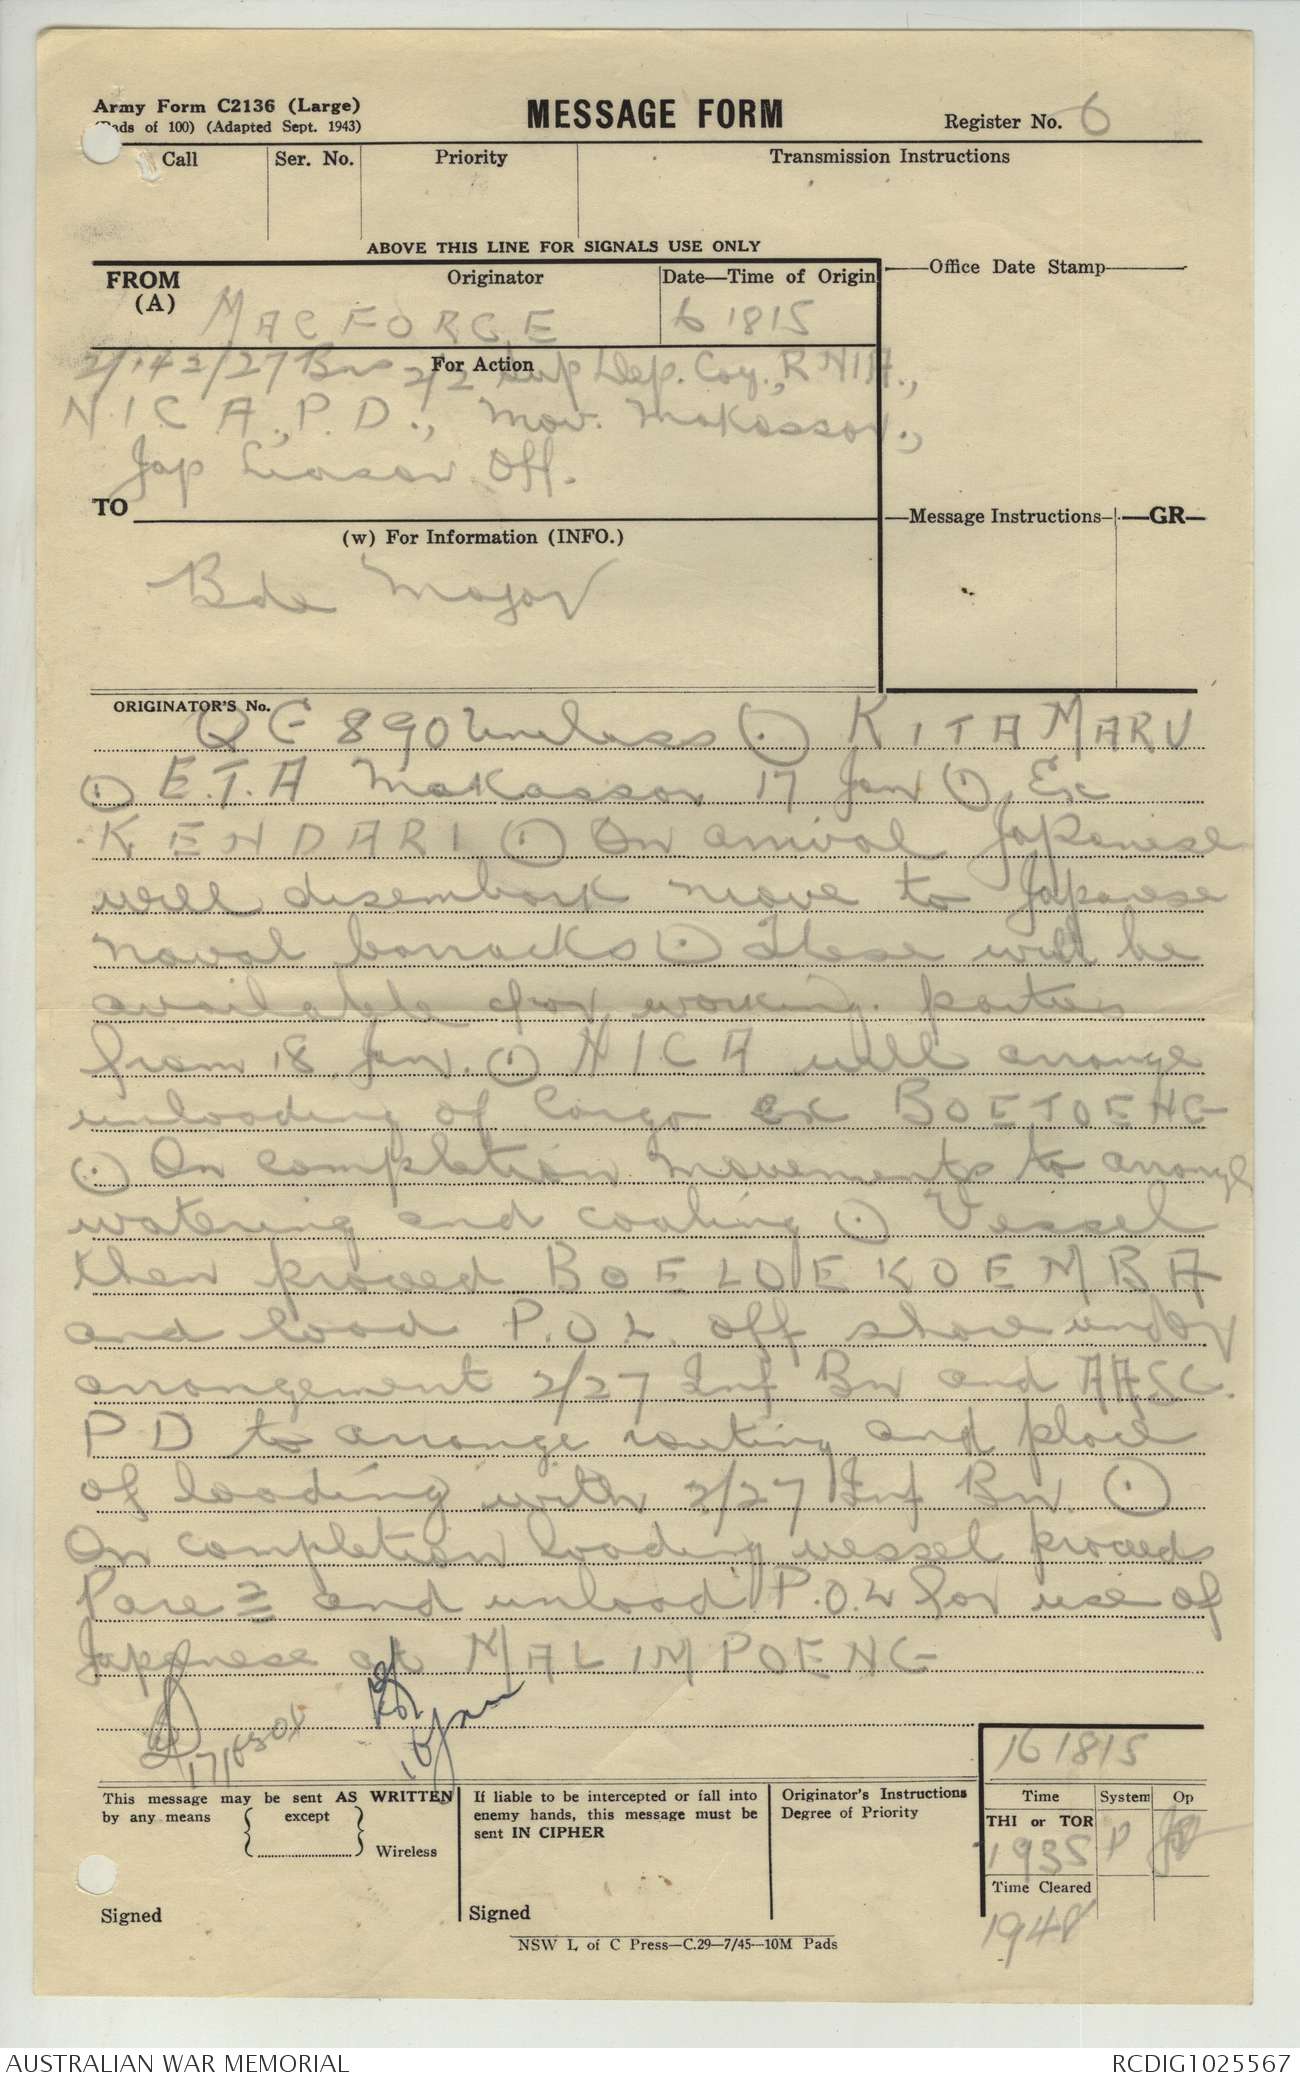 Army Form C2136 (Large)
(Pads of 100) (Adapted Sept. 1943)
MESSAGE FORM
Register No. 6
Call Ser. No. Priority Transmission Instructions
ABOVE THIS LINE FOR SIGNALS USE ONLY
FROM (A) Originator Date—Time of Origin Office Date Stamp
MACFORCE 61815
For Action
2/14 2/27 Bns 2/2 Sup Dep. Coy., R NIA.,
N.I.C.A., P.D., Mov. Makassar.,
Jap Liason Off.
TO
Message Instructions GR
(w) For Information (INFO.)
Bde Major
ORIGINATOR'S No.
QG 890 Unclass ⊙ KITA MARU
⊙ E.T.A Makassar 17 Jan ⊙ Ex
KENDARI ⊙ On arrival Japanese
will disembark move to Japanese
naval barracks ⊙ These will be
available for working parties
from 18 Jan. ⊙ NICA will arrange
unloading of Cargo ex BOETOENG
⊙ On completion movements to arrange
watering and coaling ⊙ Vessel
then proceed BOELOEKOEMBA
and load P.O.L. off shore under
arrangement 2/27 Inf Bn and AASC.
P.D to arrange routing and place
of loading with 2/27 Inf Bn. ⊙
On completion loading vessel proceeds
Pare 2 and unload P.O.L for use of
Japanese at MALIMPOENG
16 Jan
161815
This message may be sent AS WRITTEN
by any means { except } Wireless
Signed
If liable to be intercepted or fall into
enemy hands, this message must be
sent IN CIPHER
Signed
Originator's Instructions
Degree of Priority
Time System Op
THI or TOR
1935 P
Time Cleared
1948
NSW L of C Press—C.29—7/45—10M Pads
AUSTRALIAN WAR MEMORIAL
RCDIG1025567